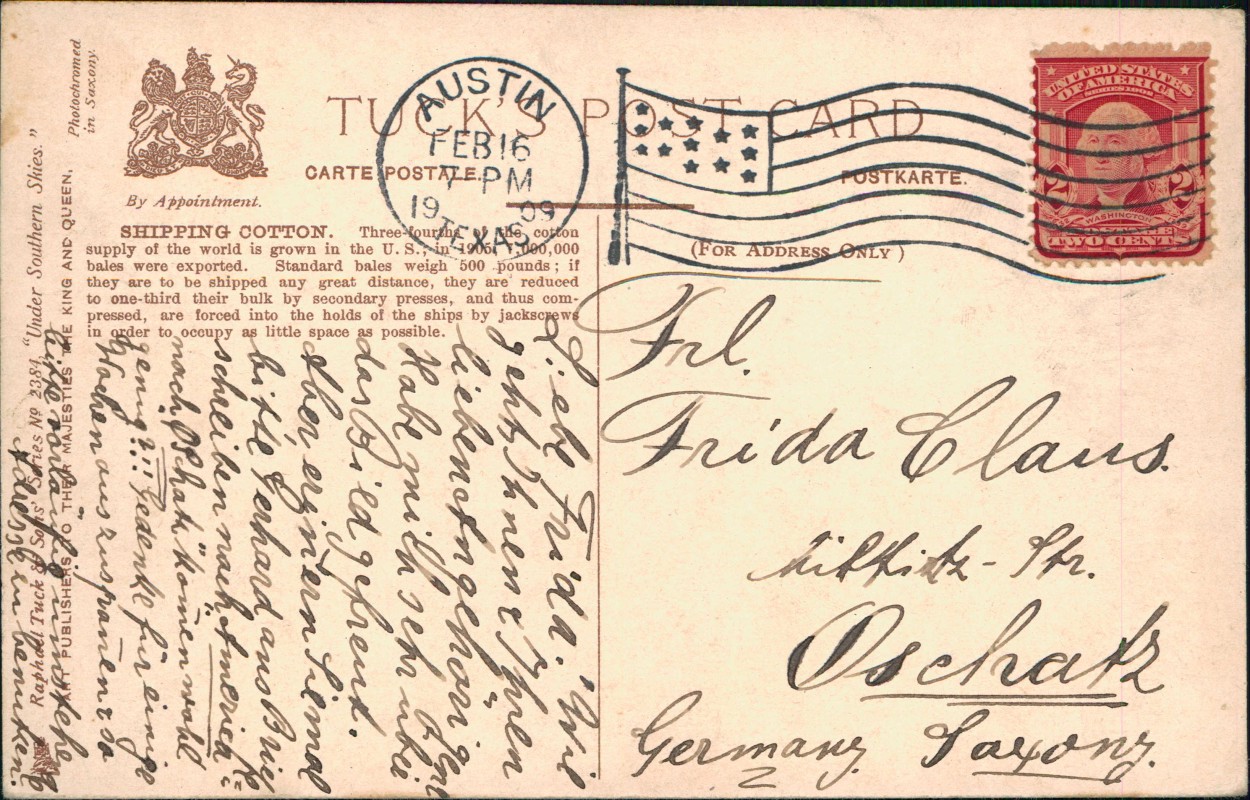 Photochromed
in Saxony.
TUCK'S POST CARD
CARTE POSTALE.
POSTKARTE.
By Appointment.
(FOR ADDRESS ONLY)
AUSTIN
FEB 16
7-PM
1909
TEXAS
UNITED STATES
OF AMERICA
SERIES 1902
WASHINGTON
2 2
TWO CENTS
SHIPPING COTTON. Three-fourths of the cotton
supply of the world is grown in the U.S., in 1905 7,000,000
bales were exported. Standard bales weigh 500 pounds; if
they are to be shipped any great distance, they are reduced
to one-third their bulk by secondary presses, and thus com-
pressed, are forced into the holds of the ships by jackscrews
in order to occupy as little space as possible.
Raphael Tuck & Sons' Series No 2384, "Under Southern Skies."
ART PUBLISHERS TO THEIR MAJESTIES THE KING AND QUEEN.
Frl.
Frida Claus.
Str.
Oschatz
Germany Saxony.
Liebe Frida. Wie
geht's Ihnen & Ihren
lieben Angehörigen
Habe mich sehr über
das Bild gefreut.
Aber
bitte Gerhard aus Brief
schreiben nach Amerika
nach "Oschatz" komen wohl
genug?!! Gedenke für einige
Wochen auszuspanen & so
bitte
Adresse benutzen.